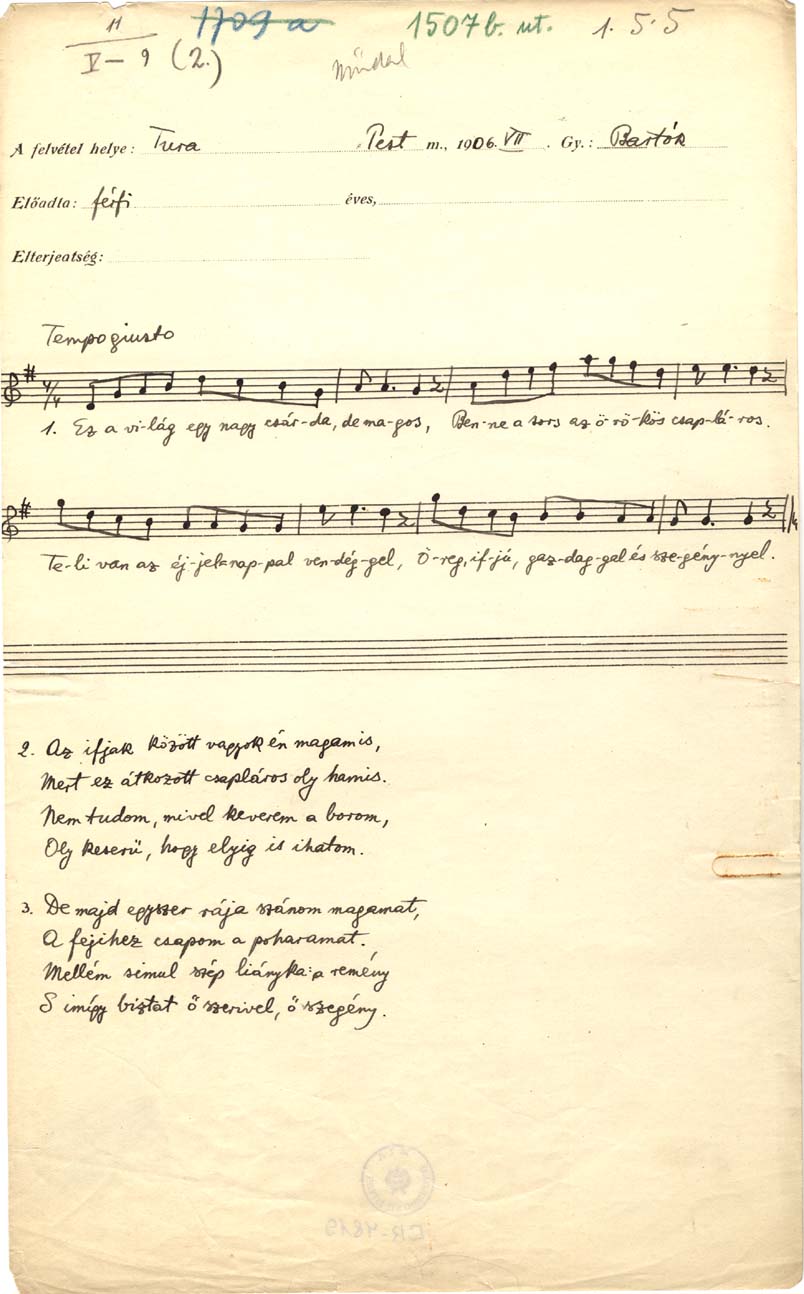 11
V – 9 (2.)
1709 a
1507 b. ut.
1. 5. 5
Műdal
A felvétel helye: Tura Pest m., 1906. VII. Gy.: Bartók
Előadta: férfi éves,
Elterjeatség:
Tempo giusto
4/4
1. Ez a vi-lág egy nagy csár-da, de ma-gos, Ben-ne a sors az ö-rö-kös csap-lá-ros.
Te-li van az éj-jel-nap-pal ven-dég-gel, Ö-reg, if-jú, gaz-dag-gal és sze-gény-nyel.
2. Az ifjak között vagyok én magamis,
Mert ez átkozott csapláros oly hamis.
Nem tudom, mivel keverem a borom,
Oly keserü, hogy elyig is ihatom.
3. De majd egyszer rája szánom magamat,
A fejihez csapom a poharamat.
Mellém simul szép liányka: a remény
S imígy biztat ő szerivel, ő szegény.